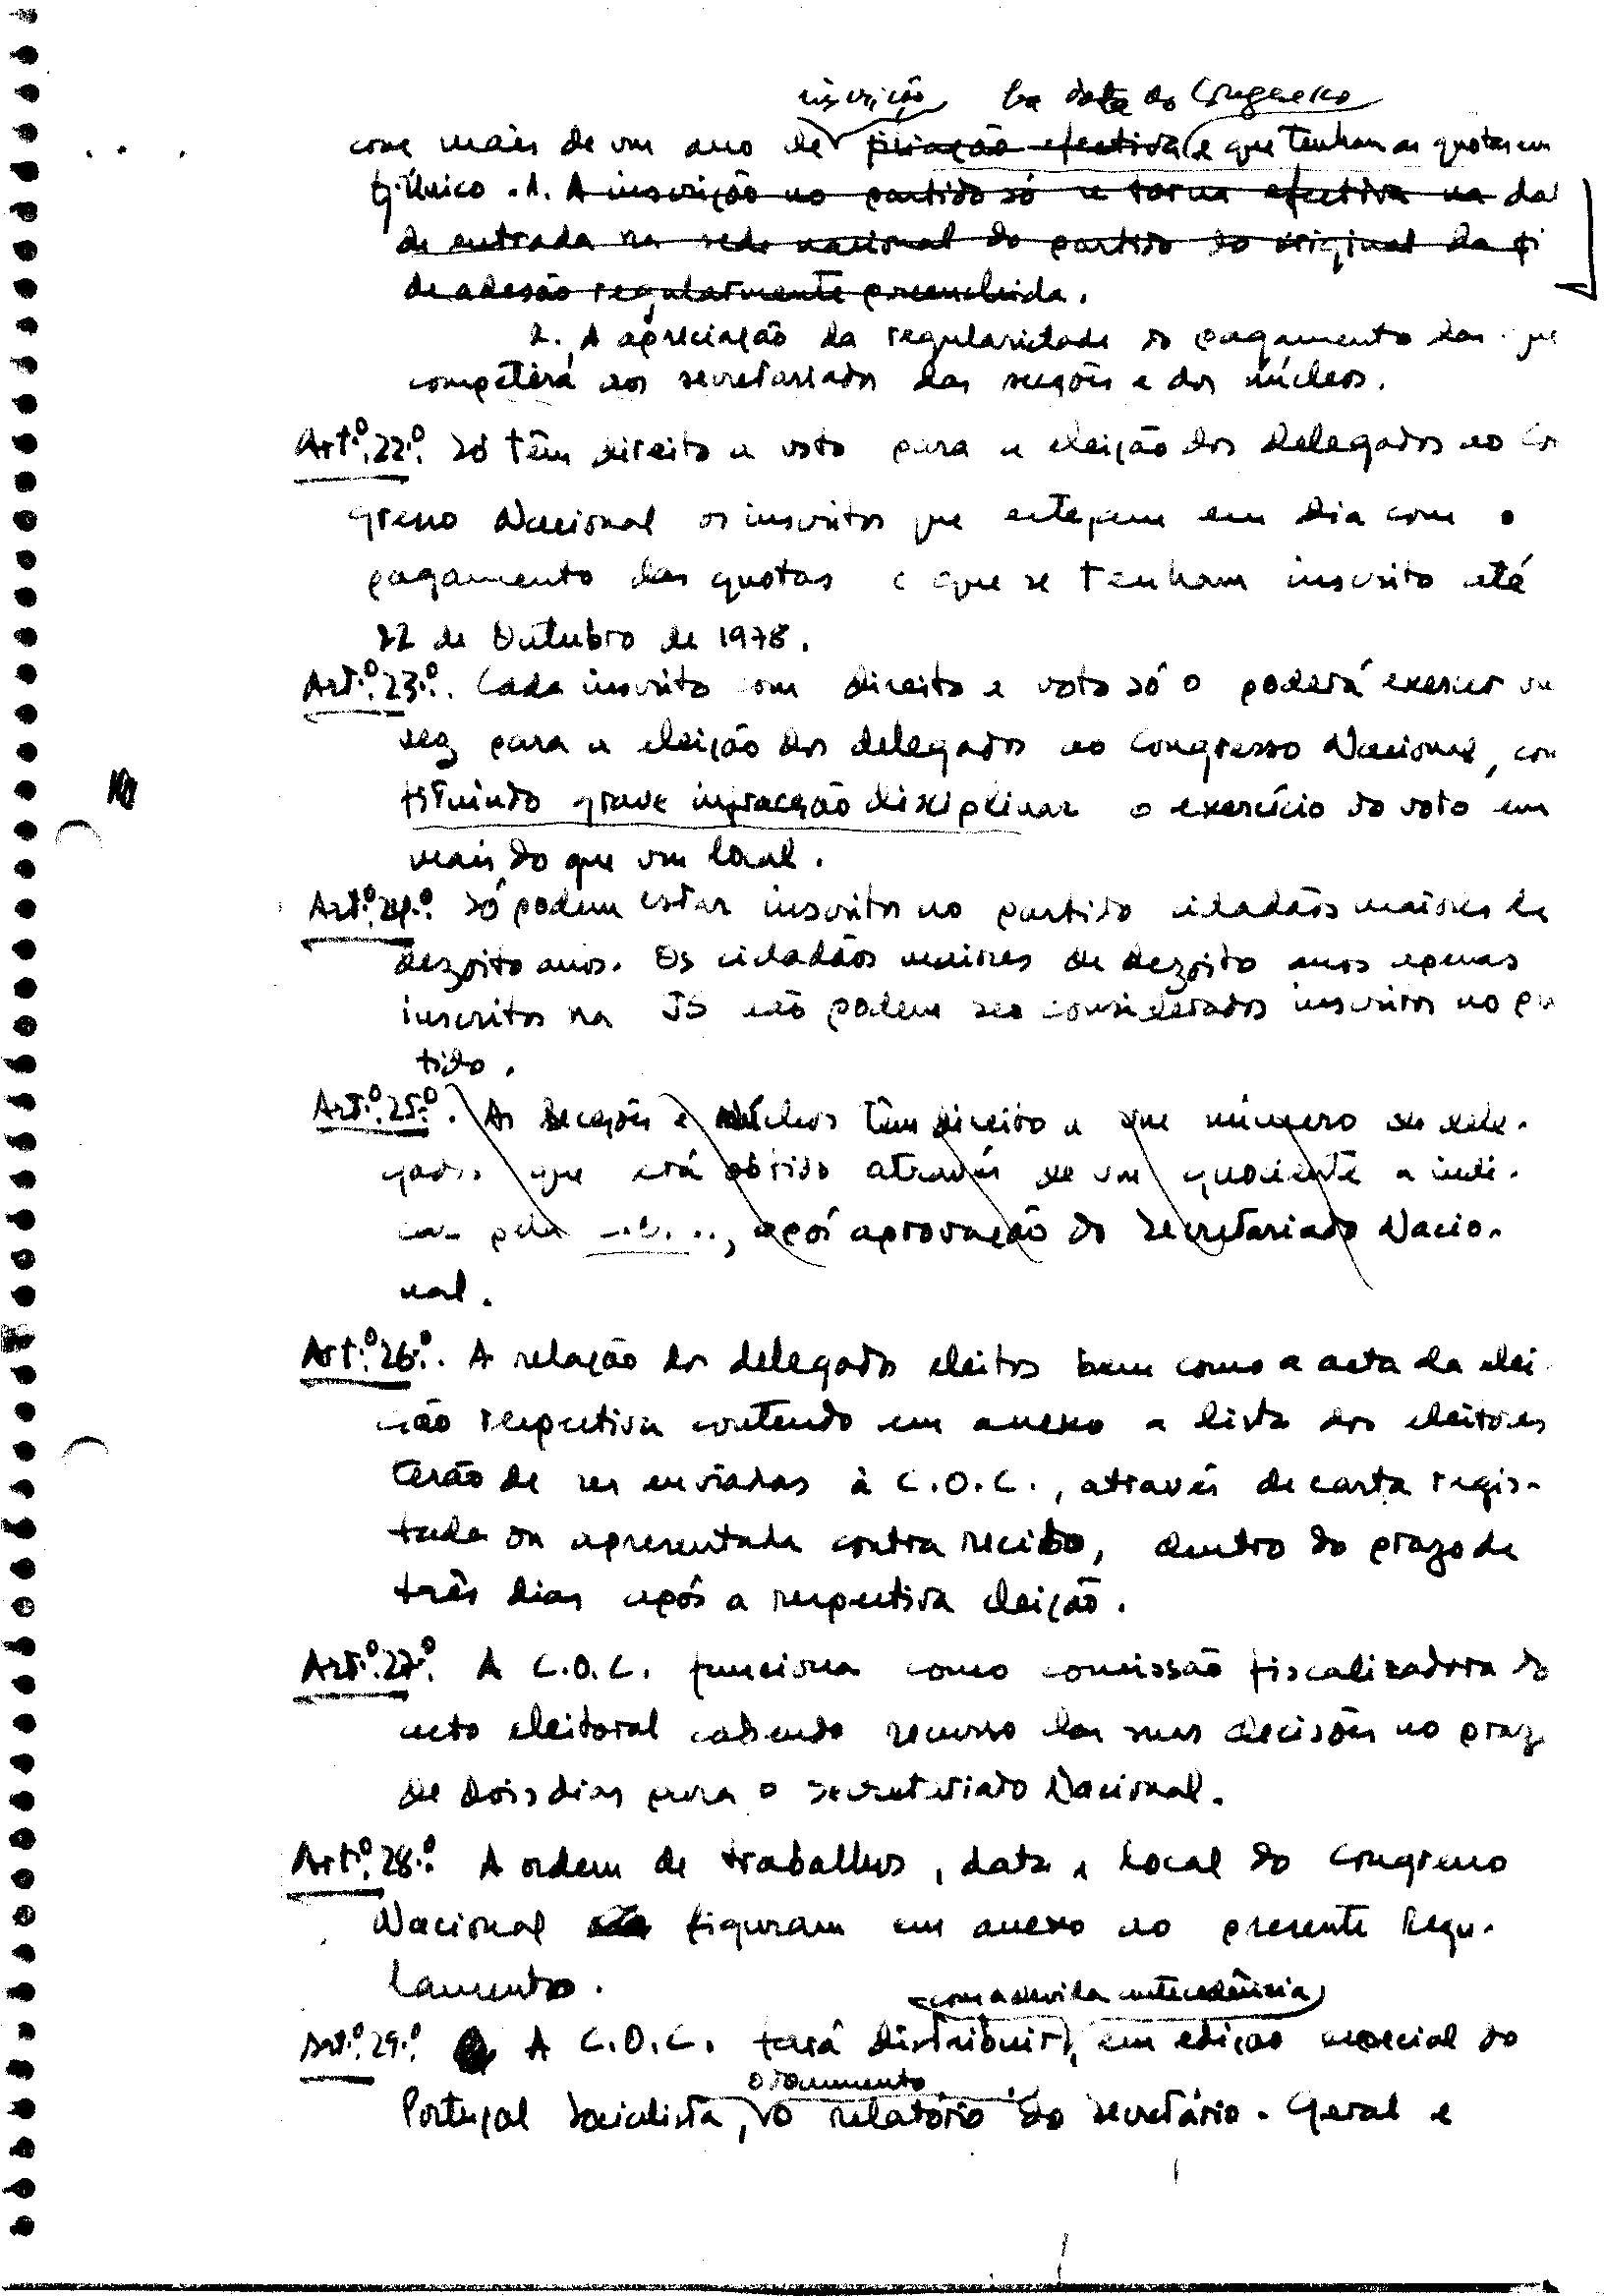 inscrição à data do Congresso
com mais de um ano de filiação efectiva e que tenham as quotas em
§. Único. 1. A inscrição no partido só se torna efectiva na da
de entrada na sede nacional do partido do original da fi
de adesão regularmente preenchida.
2. A apreciação da regularidade do pagamento das
competirá aos secretariados das secções e dos núcleos.
Art.º 22.º. Só têm direito a voto para a eleição dos Delegados ao Con
gresso Nacional os inscritos que estejam em dia com o
pagamento das quotas e que se tenham inscrito até
22 de Outubro de 1978.
Art.º 23.º. Cada inscrito com direito a voto só o poderá exercer
vez para a eleição dos delegados ao Congresso Nacional, con
tituindo grave infracção disciplinar o exercício do voto em
mais do que um local.
Art.º 24.º. Só podem estar inscritos no partido cidadãos maiores de
dezoito anos. Os cidadãos maiores de dezoito anos apenas
inscritos na JS não podem ser considerados inscritos no
tido.
Art.º 25.º. As Secções e Núcleos têm direito a um número de dele-
gados que será obtido através de um quociente a indi-
car pela após aprovação do Secretariado Nacio-
nal.
Art.º 26.º. A relação dos delegados eleitos bem como a acta da elei
ção respectiva contendo em anexo a lista dos eleitores
terão de ser enviadas à C.O.C., através de carta regis-
tada ou apresentada contra recibo, dentro do prazo de
três dias após a respectiva eleição.
Art.º 27.º. A C.O.C. funciona como comissão fiscalizadora do
acto eleitoral cabendo recurso das suas decisões no praz
de dois dias para o Secretariado Nacional.
Art.º 28.º. A ordem de trabalhos, data e local do Congresso
Nacional figuram em anexo ao presente Regu-
lamento.
com a devida antecedência
Art.º 29.º. A C.O.C. fará distribuir, em edição especial do
o documento
Portugal Socialista, o relatório do Secretário-Geral e